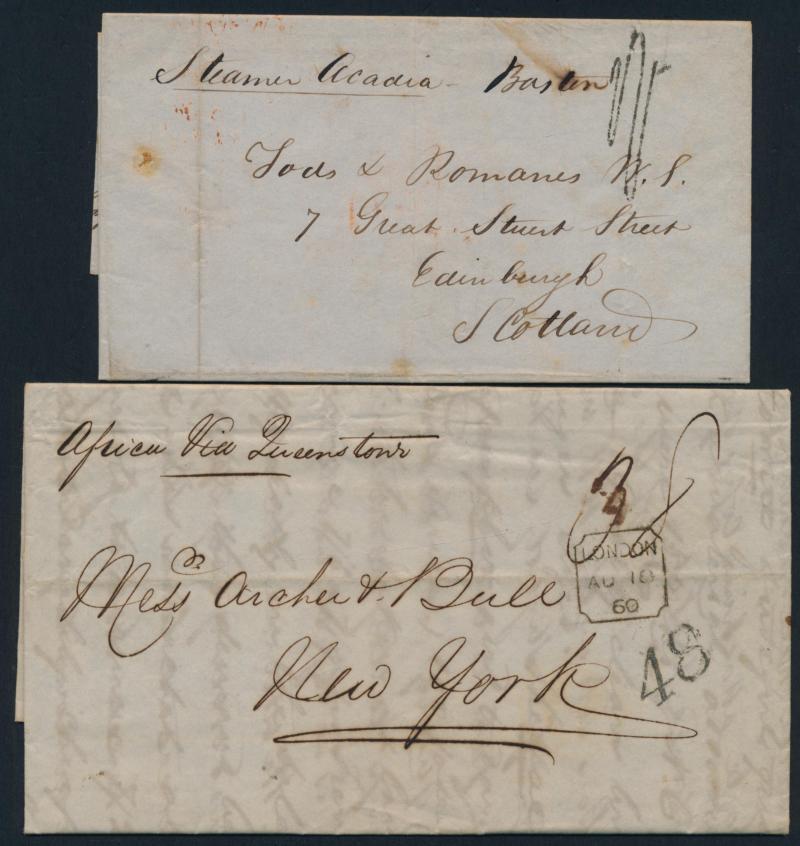 Steamer Acadia - Boston
Tods & Romanes W.S.
7 Great Stuart Street
Edinburgh
Scotland
Africa Via Queenstown
Messrs Archer & Bull
New York
LONDON
AU 18
60
48